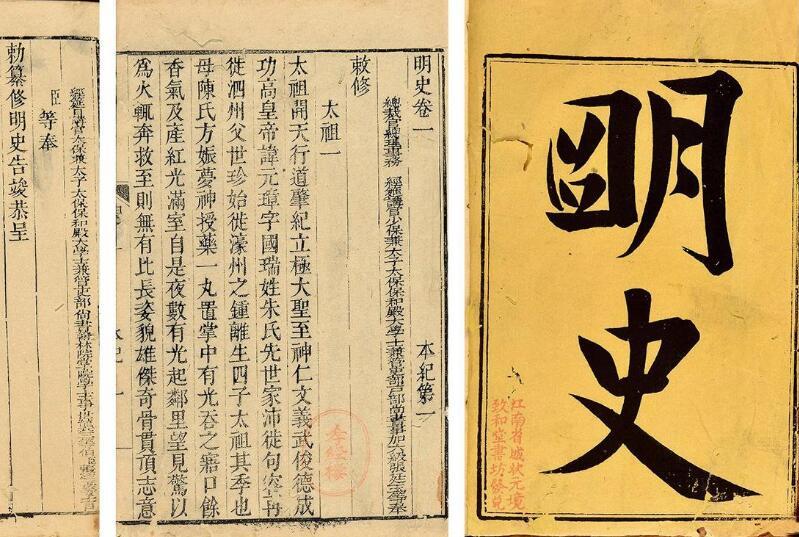 明
史
江南省城狀元境
玖和堂書坊發兌
明史卷一 本紀第一
總裁官總理事務 經筵講官少保兼太子太保保和殿大學士兼管吏部戶部尚書事加六級張廷玉等奉
敕修
太祖一
太祖開天行道肇紀立極大聖至神仁文義武俊德成
功高皇帝諱元璋字國瑞姓朱氏先世家沛徙句容再
徙泗州父世珍始徙濠州之鍾離生四子太祖其季也
母陳氏方娠夢神授藥一丸置掌中有光吞之寤口餘
香氣及產紅光滿室自是夜數有光起鄰里望見驚以
為火輒奔救至則無有比長姿貌雄傑奇骨貫頂志意
經筵日講官太保兼太子太保保和殿大學士兼管吏部尚書翰林院掌院學士事世襲三等伯
臣等奉
勅纂修明史告竣恭呈